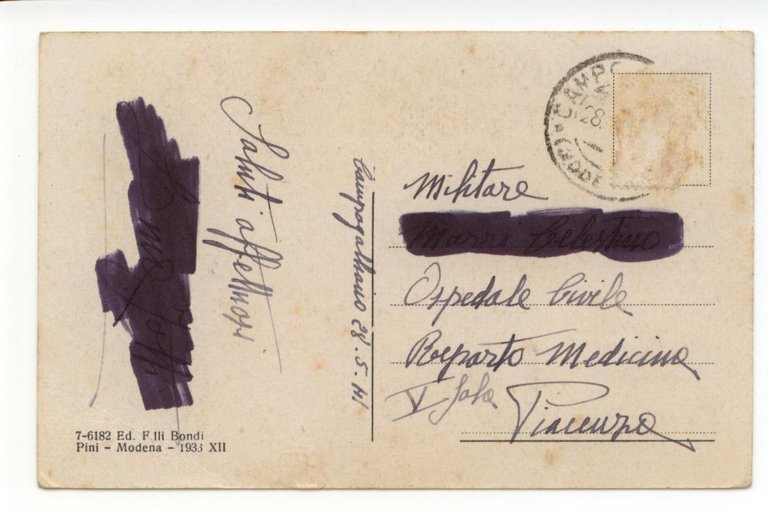 Saluti affettuosi
Campogalliano 28.5.41
CAMPO
28.
(MODE
Militare
Ospedale Civile
Reparto Medicina
V Sala
Piacenza
7-6182 Ed. F.lli Bondi
Pini - Modena - 1933 XII